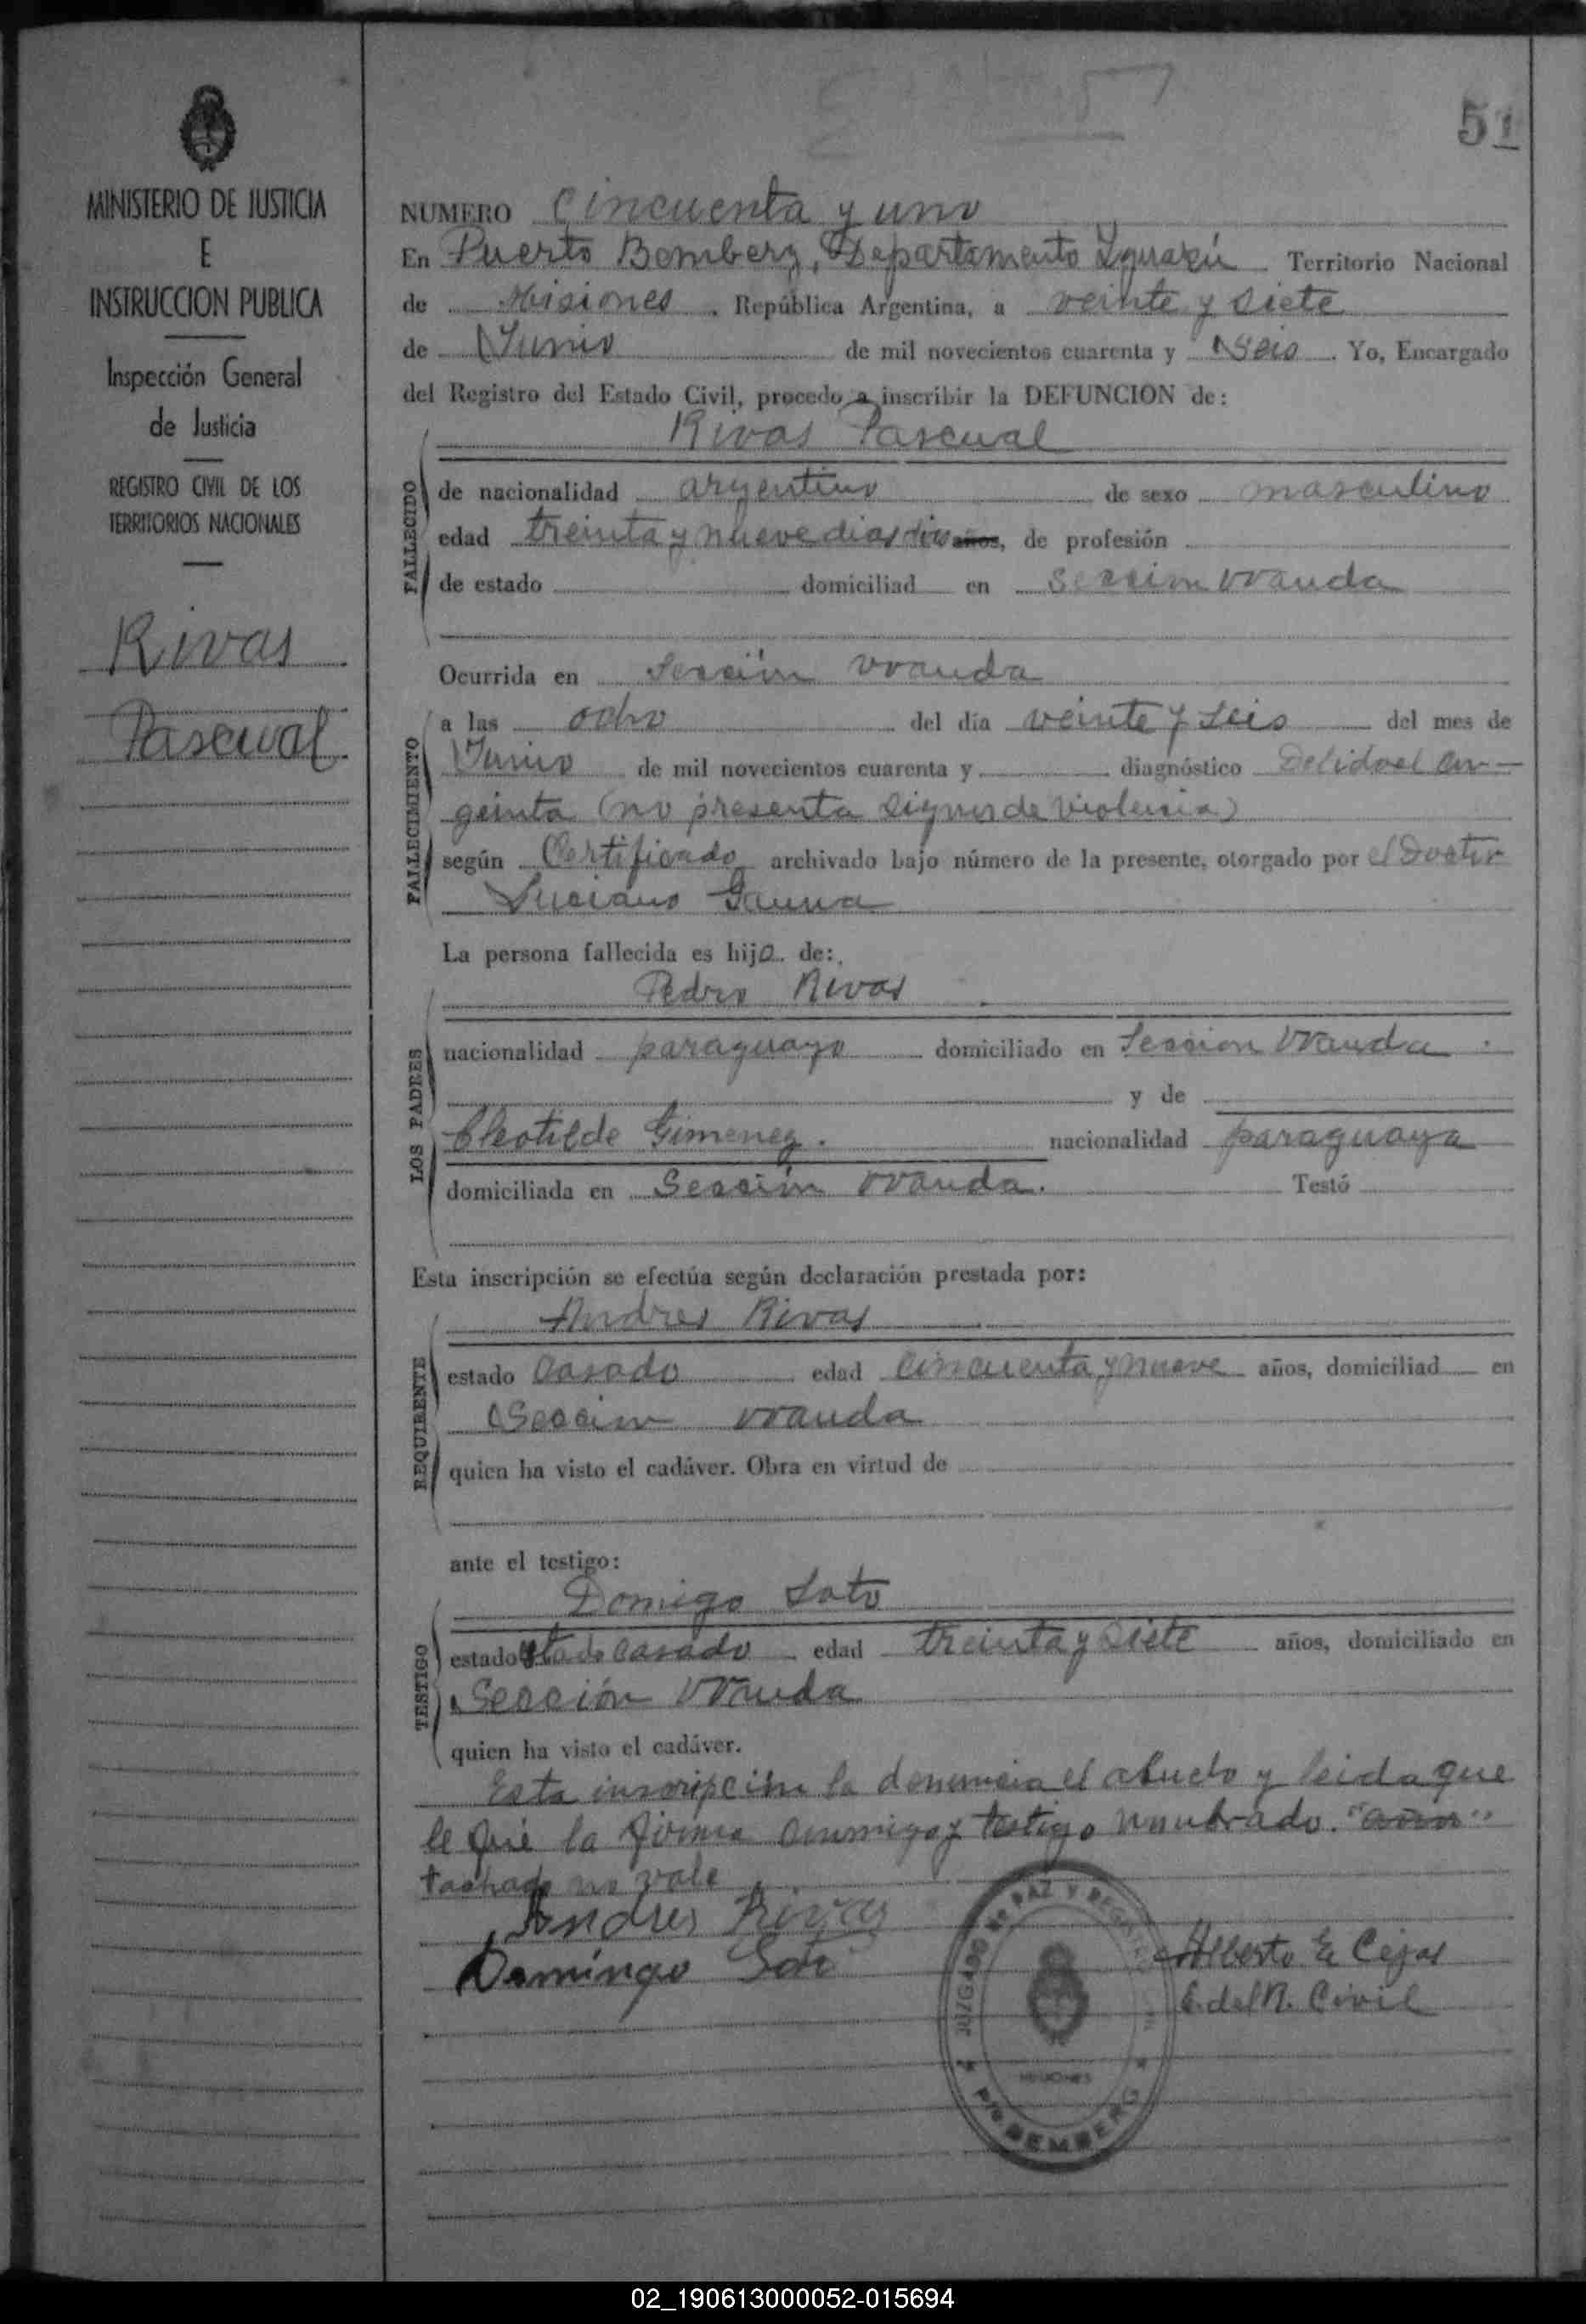 51
MINISTERIO DE JUSTICIA
E
INSTRUCCION PUBLICA
Inspección General
de Justicia
REGISTRO CIVIL DE LOS
TERRITORIOS NACIONALES
Rivas
Pascual
NUMERO cincuenta y uno
En Puerto Bemberg, Departamento Iguazú Territorio Nacional
de Misiones. República Argentina, a veinte y siete
de Junio de mil novecientos cuarenta y seis. Yo, Encargado
del Registro del Estado Civil, procedo a inscribir la DEFUNCION de:
Rivas Pascual
FALLECIDO
de nacionalidad argentino de sexo masculino
edad treinta y nueve dias años, de profesión
de estado domiciliad en Sección Wanda
Ocurrida en Sección Wanda
FALLECIMIENTO
a las ocho del día veinte y seis del mes de
Junio de mil novecientos cuarenta y diagnóstico
(no presenta signos de violencia)
según Certificado archivado bajo número de la presente, otorgado por el Doctor
Luciano Gauna
La persona fallecida es hijo de:
Pedro Rivas
LOS PADRES
nacionalidad paraguayo domiciliado en Sección Wanda
y de
Cleotilde Gimenez. nacionalidad paraguaya
domiciliada en Sección Wanda. Testó
Esta inscripción se efectúa según declaración prestada por:
Andres Rivas
REQUIRENTE
estado casado edad cincuenta y nueve años, domiciliad en
Sección Wanda
quien ha visto el cadáver. Obra en virtud de
ante el testigo:
Domigo Soto
TESTIGO
estado casado edad treinta y siete años, domiciliado en
Sección Wanda
quien ha visto el cadáver.
Esta inscripción la denuncia el abuelo y leida que
le fué la firma conmigo y testigo nombrado. "años"
tachado no vale
Andres Rivas
Domingo Soto
Alberto E. Cejas
E. del R. Civil
JUZGADO DE PAZ Y REGISTRO CIVIL
MISIONES
Pto BEMBERG
02_190613000052-015694